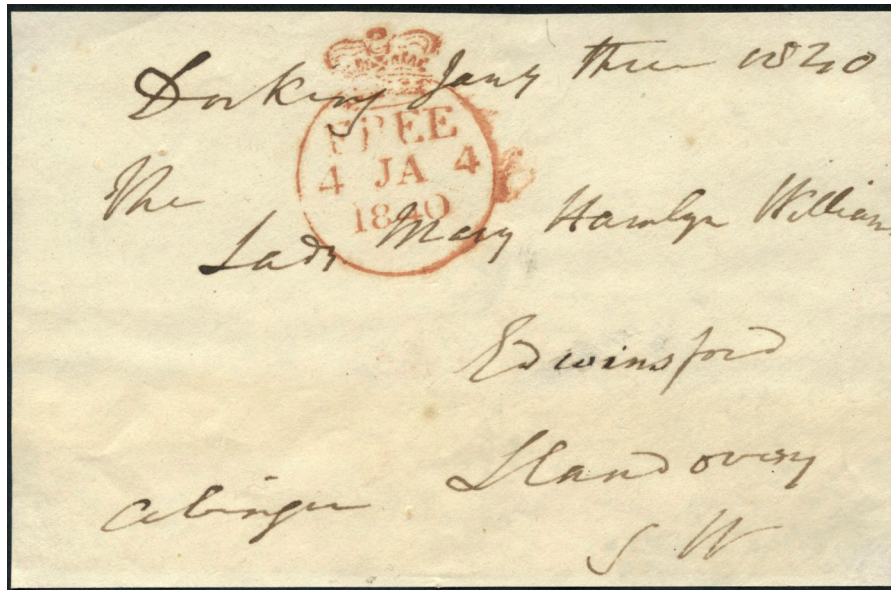 Dorking Jany three 1840
FREE
4 JA 4
1840
The
Lady Mary Hamlyn William
Edwinsford
Llandovery
Abinger
S. W